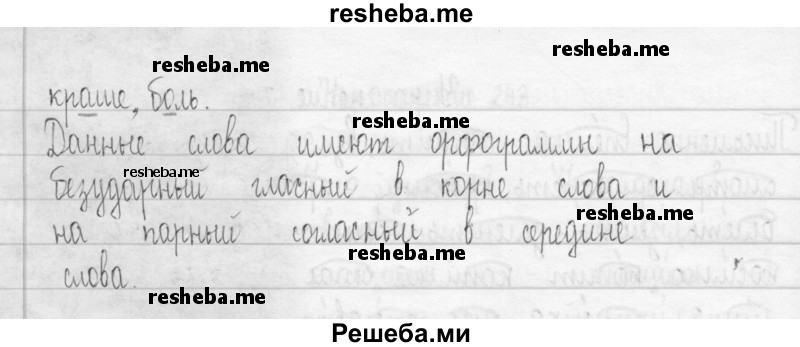 resheba.me
resheba.me
resheba.me
краше, боль.
resheba.me
Данные слова имеют орфограммы на
resheba.me
безударный гласный в корне слова и
resheba.me
на парный согласный в середине
слова.
resheba.me
resheba.me
Решеба.ми